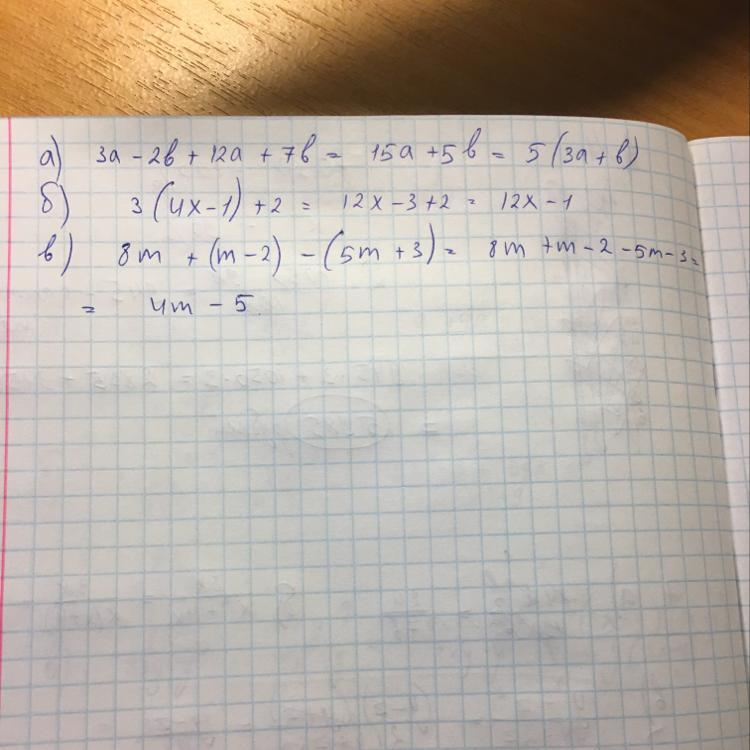 а) 3a - 2b + 12a + 7b = 15a + 5b = 5(3a + b)
б) 3(4x - 1) + 2 = 12x - 3 + 2 = 12x - 1
в) 8m + (m - 2) - (5m + 3) = 8m + m - 2 - 5m - 3 =
= 4m - 5